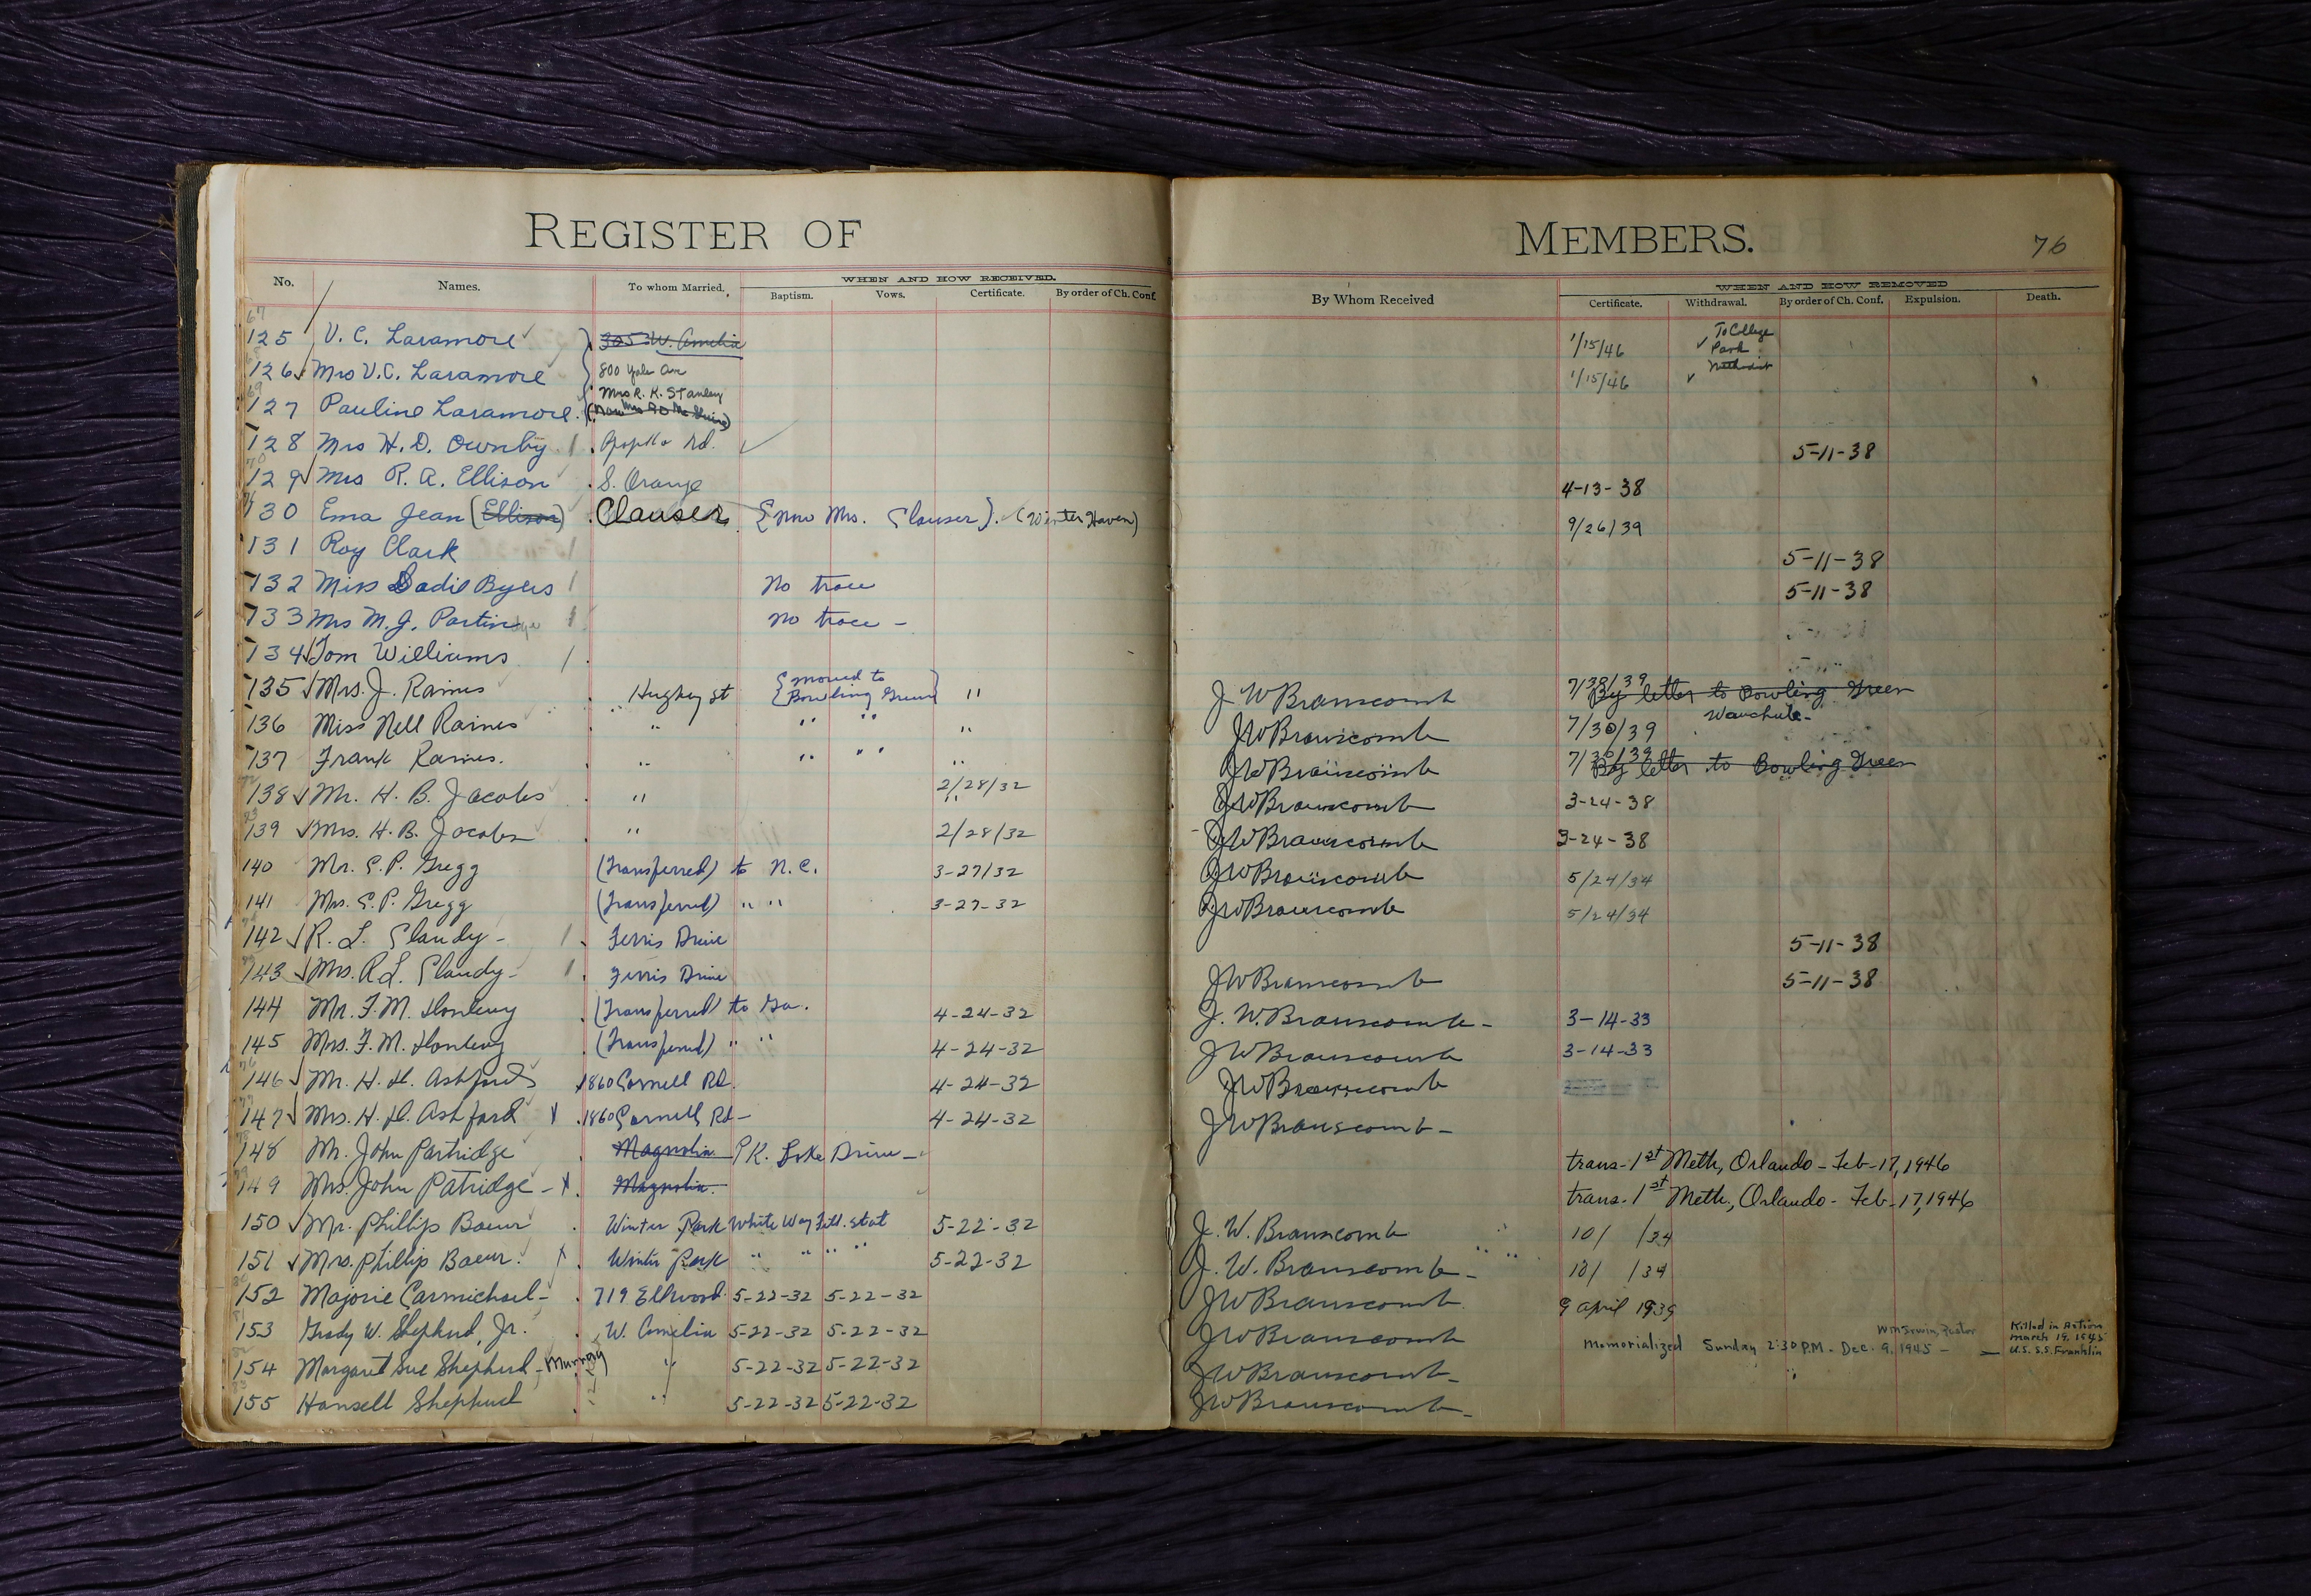 REGISTER OF MEMBERS. 76
No. Names. To whom Married. WHEN AND HOW RECEIVED. Baptism. Vows. Certificate. By order of Ch. Conf. By Whom Received WHEN AND HOW REMOVED Certificate. Withdrawal. By order of Ch. Conf. Expulsion. Death.
125 V. C. Laramore 305 W. Amelia 1/15/46 ✓ To College Park Methodist
126 ✓ Mrs V. C. Laramore 800 Yale Ave 1/15/46 ✓
127 Pauline Laramore. Mrs R. K. Stanley
128 Mrs H. D. Ownby Rd. 5-11-38
129 ✓ Mrs R. A. Ellison S. Orange 4-13-38
130 Ema Jean (Ellison) Clauser {now Mrs. Clauser}. (Winter Haven) 9/26/39
131 Roy Clark 5-11-38
132 Miss Sadie Byers No trace 5-11-38
133 Mrs M. J. Partin No trace -
134 ✓ Tom Williams
135 ✓ Mrs. J. Raines Hughey St {moved to Bowling Green} " J. W Branscomb 7/30/39 By letter to Bowling Green
136 Miss Nell Raines " " " " JW Branscomb 7/30/39 Wauchula-
137 Frank Raines. " " " " JW Branscomb 7/30/39 By letter to Bowling Green
138 ✓ Mr. H. B. Jacobs " 2/28/32 JW Branscomb 3-24-38
139 ✓ Mrs. H. B. Jacobs " 2/28/32 JW Branscomb 3-24-38
140 Mr. E. P. Gregg (Transferred) to N. C. 3-27/32 JW Branscomb 5/24/34
141 Mrs. E. P. Gregg (Transferred) " " 3-27-32 JW Branscomb 5/24/34
142 ✓ R. L. Clandy - Ferris Drive 5-11-38
143 ✓ Mrs. R L. Clandy - Ferris Drive JW Branscomb 5-11-38
144 Mr. F. M. (Transferred) to Ga. 4-24-32 J. W. Branscomb - 3-14-33
145 Mrs. F. M. (Transferred) " " 4-24-32 JW Branscomb 3-14-33
146 ✓ Mr. H. H. Ashford 1860 Cornell Rd. 4-24-32 JW Branscomb
147 ✓ Mrs. H. H. Ashford x 1860 Cornell Rd - 4-24-32 JW Branscomb -
148 Mr. John Partridge Magnolia PK. Lake Drive - trans- 1st Meth, Orlando - Feb-17, 1946
149 Mrs. John Patridge - x. Magnolia. trans. 1st Meth., Orlando - Feb-17, 1946
150 ✓ Mr. Phillip Baeur Winter Park White Way Fill. Stat 5-22-32 J. W. Branscomb 10/ /34
151 ✓ Mrs. Phillip Baeur. x Winter Park " " " " 5-22-32 J. W. Branscomb - 10/ /34
152 Majorie Carmichael - 719 Ellwood 5-22-32 5-22-32 JW Branscomb 9 April 1939
153 Grady W. Shepherd, Jr. W. Amelia 5-22-32 5-22-32 JW Branscomb Memorialized Sunday 2:30 P.M. - Dec. 9, 1945 - Wm Irwin, Pastor Killed in Action March 19, 1945 U.S.S. Franklin
154 Margaret Sue Shepherd - Murray " 5-22-32 5-22-32 JW Branscomb -
155 Hansell Shepherd " 5-22-32 5-22-32 JW Branscomb -